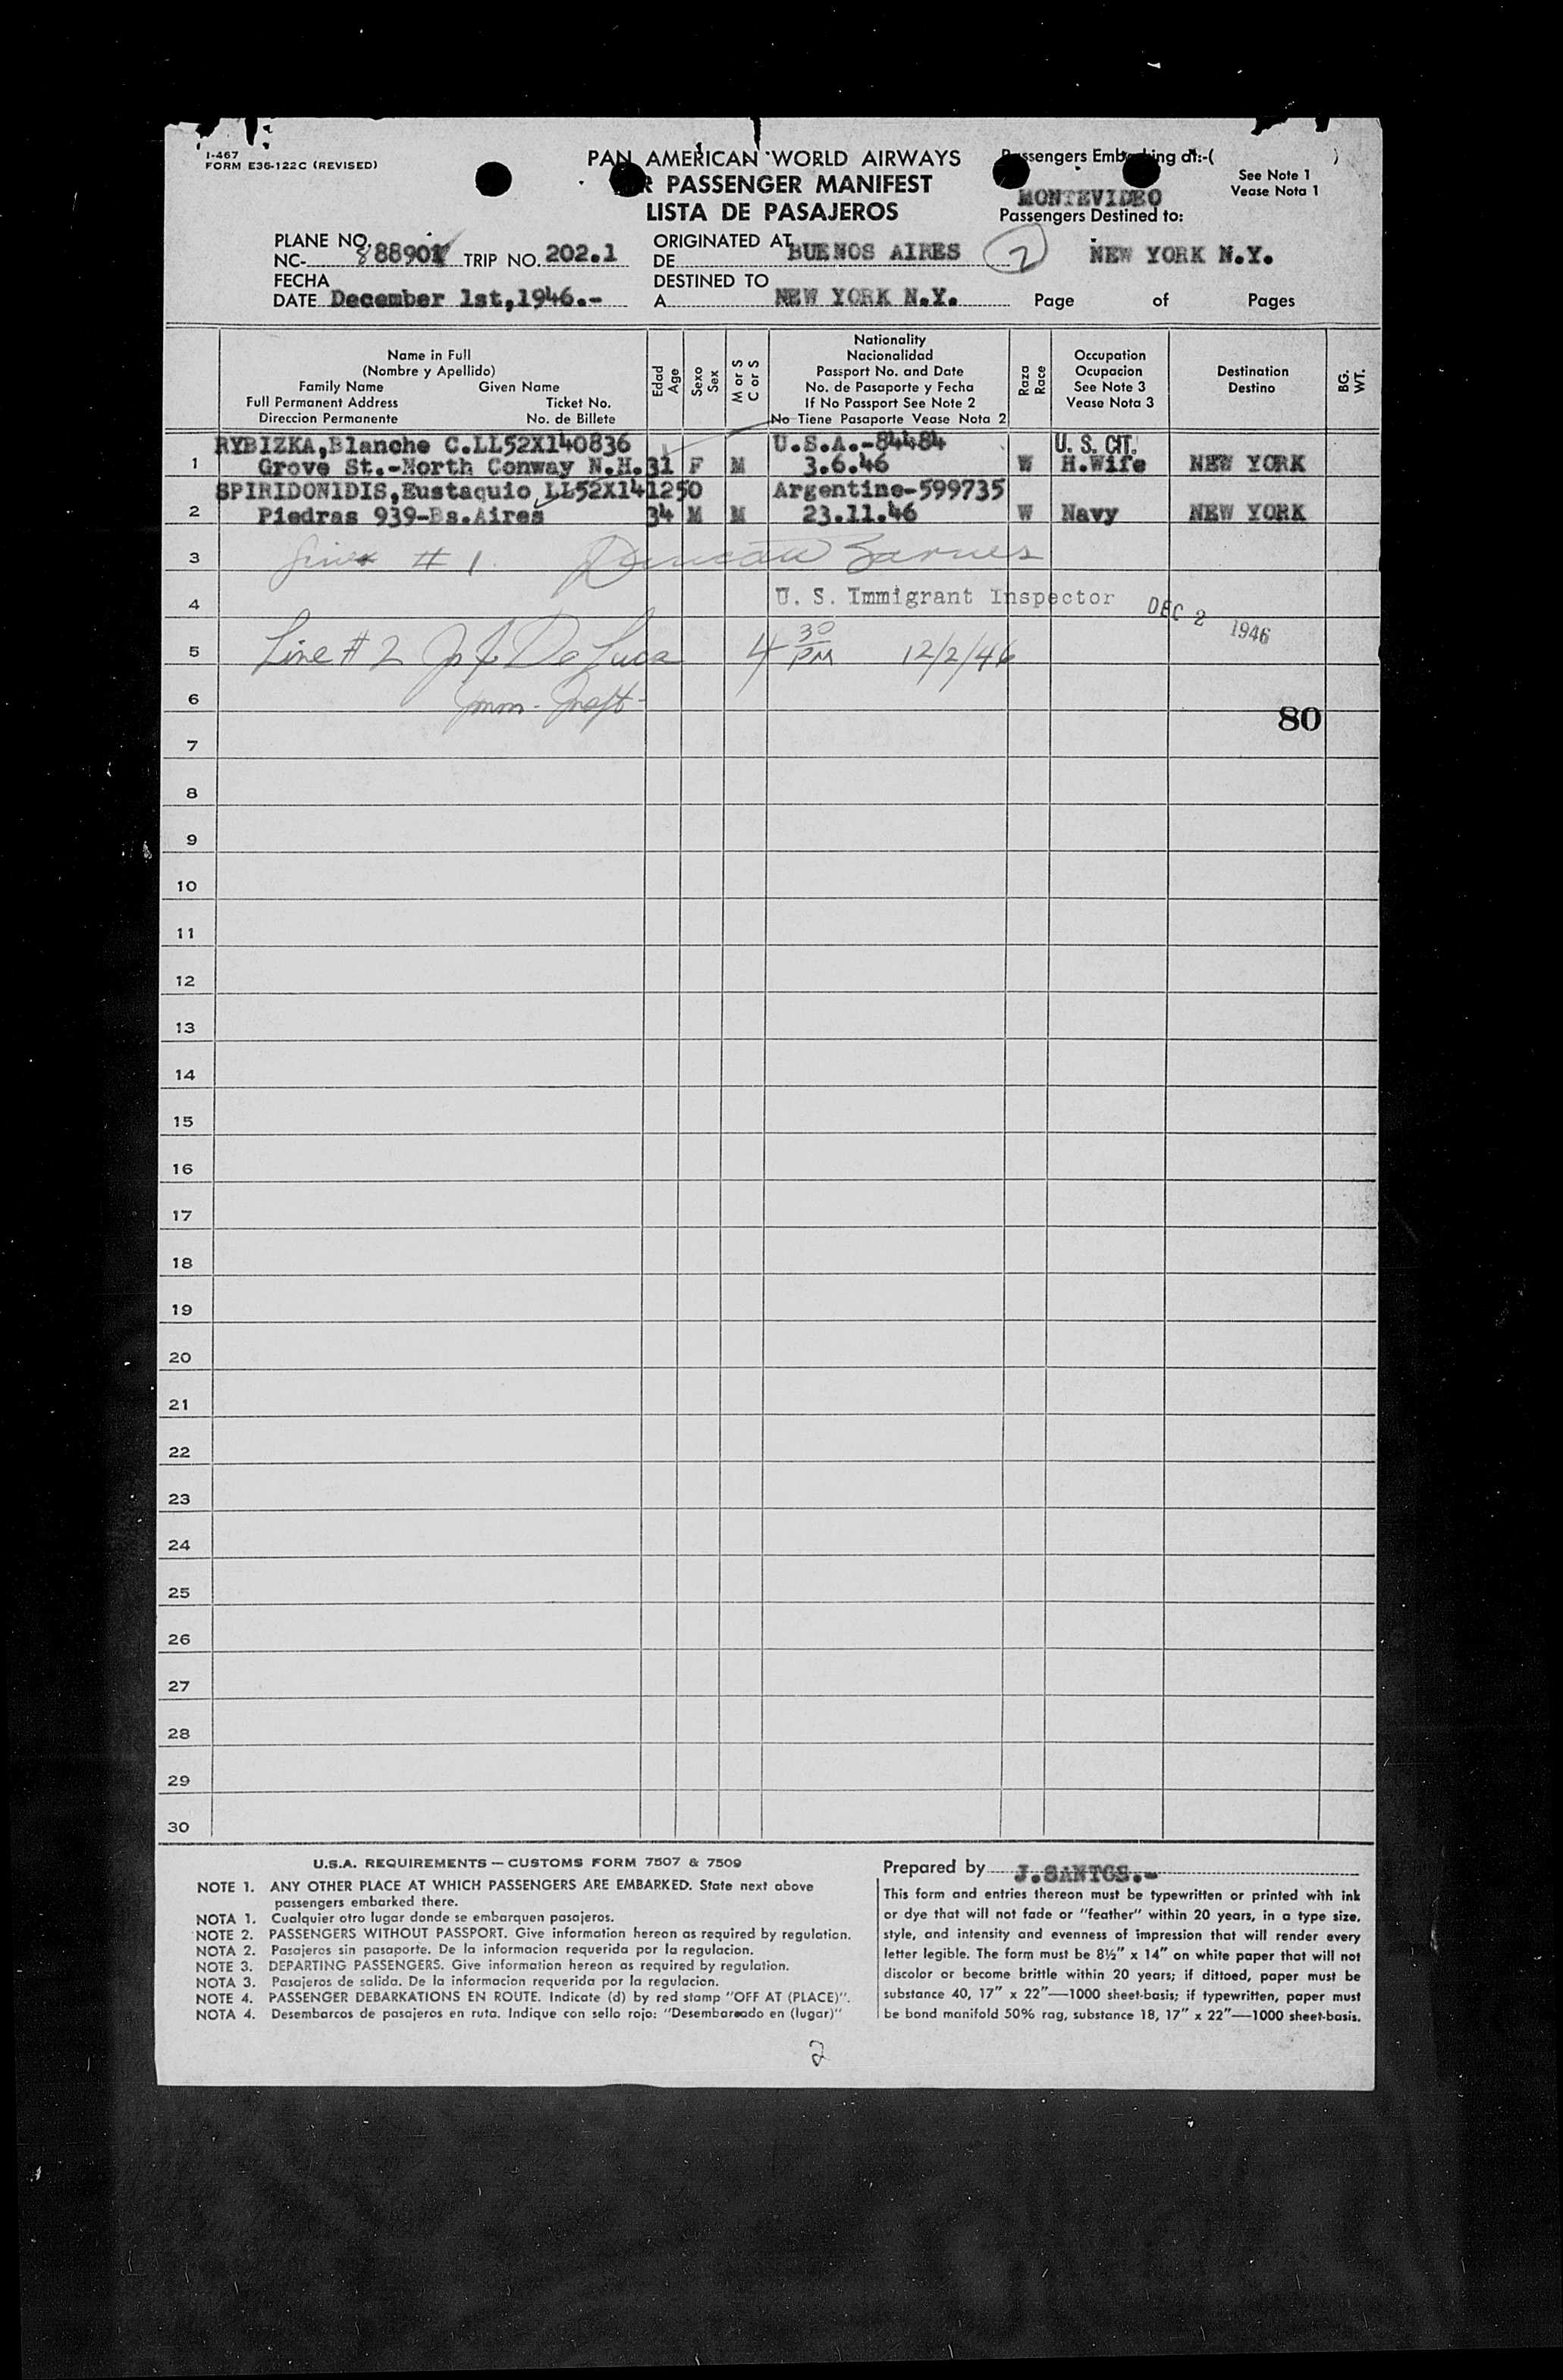 I-467
FORM E36-122C (REVISED)
PAN AMERICAN WORLD AIRWAYS
R PASSENGER MANIFEST
LISTA DE PASAJEROS
Passengers Embarking at:-( )
See Note 1
Vease Nota 1
MONTEVIDEO
Passengers Destined to:
NEW YORK N.Y.
PLANE NO.
NC- 88901 TRIP NO. 202.1
FECHA
DATE December 1st,1946.-
ORIGINATED AT
DE BUENOS AIRES
2
DESTINED TO
A NEW YORK N.Y.
Page of Pages
Name in Full
(Nombre y Apellido)
Family Name Given Name
Full Permanent Address Ticket No.
Direccion Permanente No. de Billete
Edad
Age
Sexo
Sex
M or S
C or S
Nationality
Nacionalidad
Passport No. and Date
No. de Pasaporte y Fecha
If No Passport See Note 2
No Tiene Pasaporte Vease Nota 2
Raza
Race
Occupation
Ocupacion
See Note 3
Vease Nota 3
Destination
Destino
BG.
WT.
RYBIZKA,Blanche C.LL52X140836 U.S.A.-84484 U. S. CIT.
1 Grove St.-North Conway N.H. 31 F M 3.6.46 W H.Wife NEW YORK
SPIRIDONIDIS,Eustaquio LL52X141250 Argentine-599735
2 Piedras 939-Bs.Aires 34 M M 23.11.46 W Navy NEW YORK
3 Line # 1. Duncan Barnes
4 U. S. Immigrant Inspector DEC 2 1946
5 Line # 2 De Luca 4 30 PM 12/2/46
6 Imm. Inspt.
80
7
8
9
10
11
12
13
14
15
16
17
18
19
20
21
22
23
24
25
26
27
28
29
30
U.S.A. REQUIREMENTS — CUSTOMS FORM 7507 & 7509
NOTE 1. ANY OTHER PLACE AT WHICH PASSENGERS ARE EMBARKED. State next above
passengers embarked there.
NOTA 1. Cualquier otro lugar donde se embarquen pasajeros.
NOTE 2. PASSENGERS WITHOUT PASSPORT. Give information hereon as required by regulation.
NOTA 2. Pasajeros sin pasaporte. De la informacion requerida por la regulacion.
NOTE 3. DEPARTING PASSENGERS. Give information hereon as required by regulation.
NOTA 3. Pasajeros de salida. De la informacion requerida por la regulacion.
NOTE 4. PASSENGER DEBARKATIONS EN ROUTE. Indicate (d) by red stamp "OFF AT (PLACE)".
NOTA 4. Desembarcos de pasajeros en ruta. Indique con sello rojo: "Desembarcado en (lugar)"
Prepared by J.SANTOS.-
This form and entries thereon must be typewritten or printed with ink
or dye that will not fade or "feather" within 20 years, in a type size,
style, and intensity and evenness of impression that will render every
letter legible. The form must be 8½" x 14" on white paper that will not
discolor or become brittle within 20 years; if dittoed, paper must be
substance 40, 17" x 22"—1000 sheet-basis; if typewritten, paper must
be bond manifold 50% rag, substance 18, 17" x 22"—1000 sheet-basis.
2